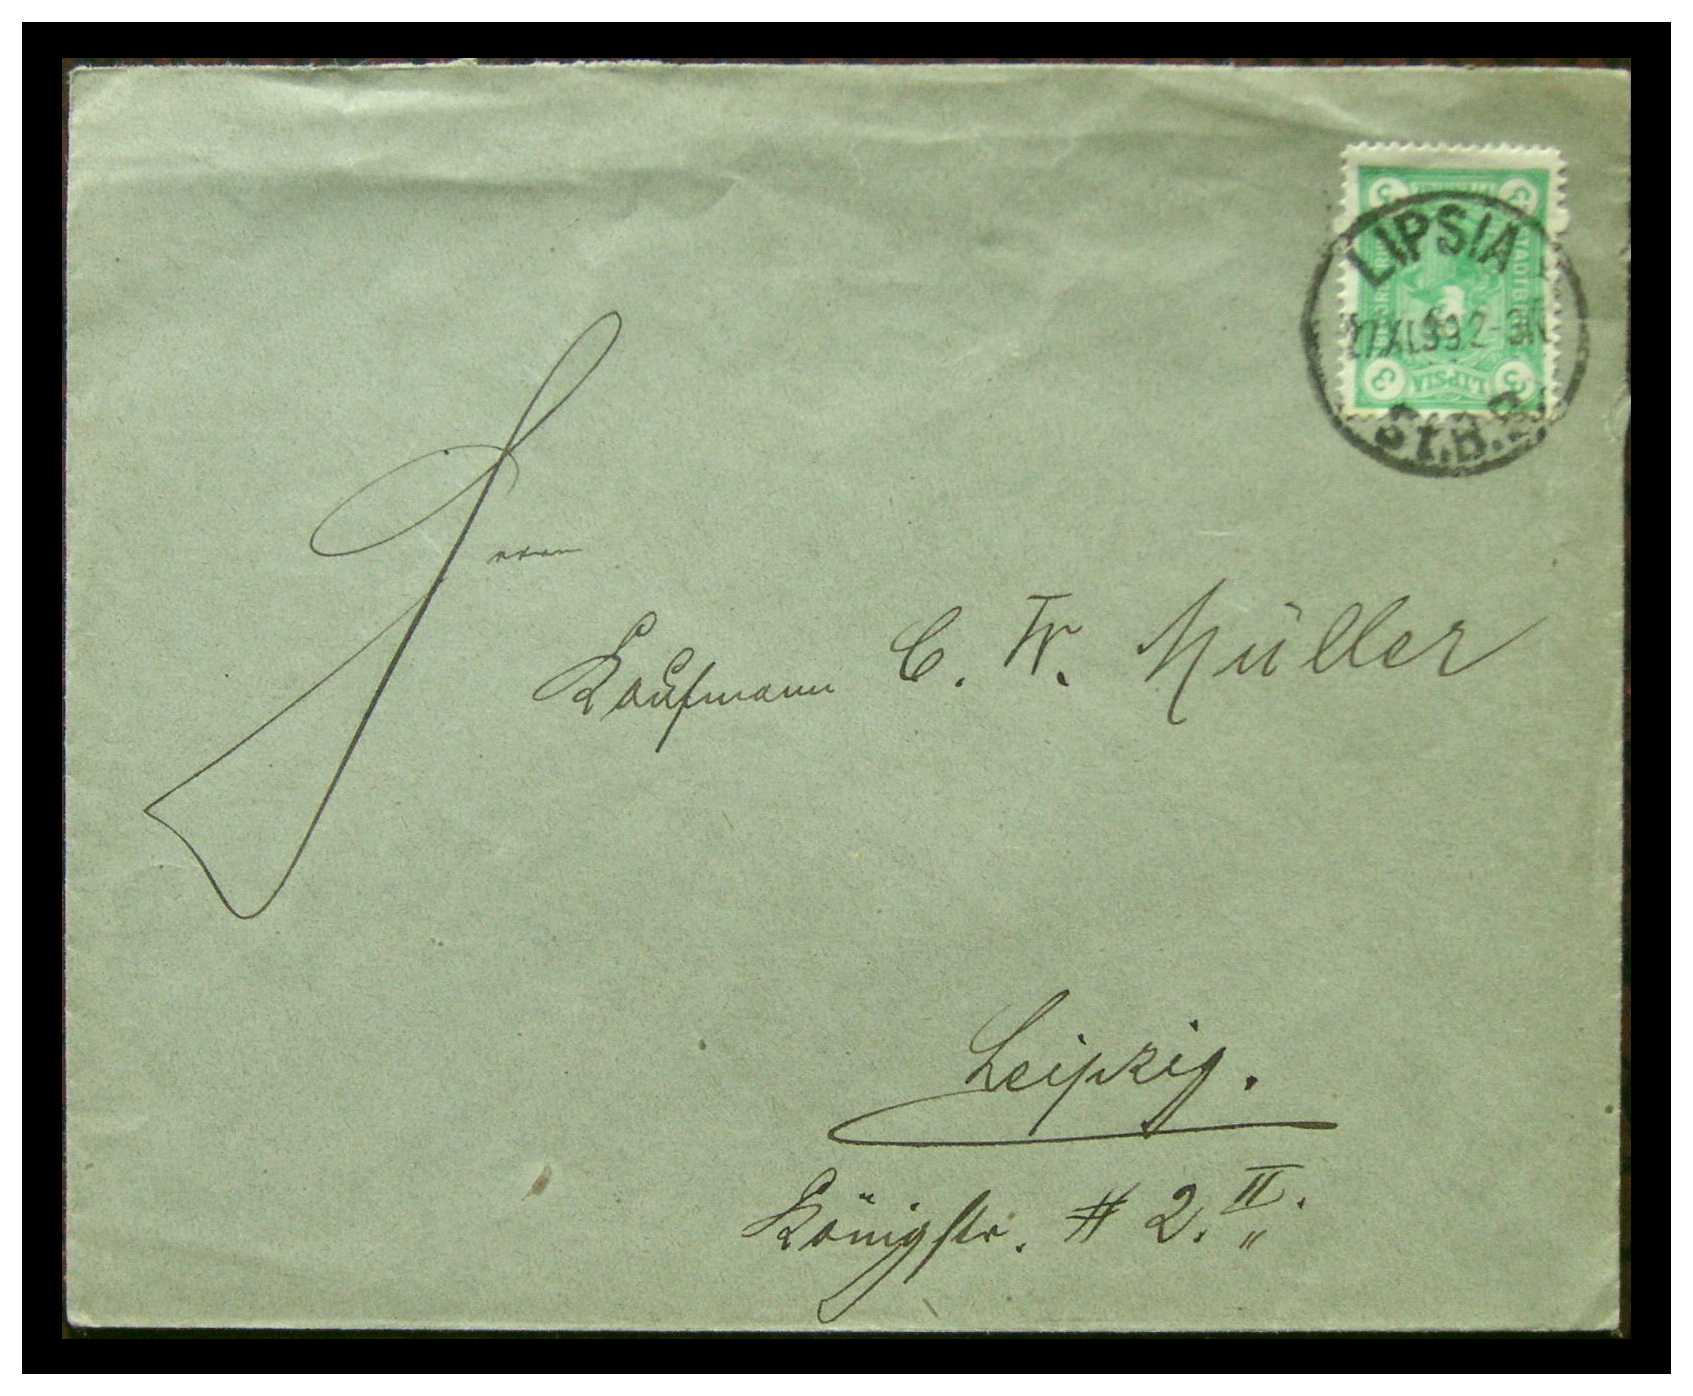 LIPSIA
27.XI.99.2-3N
St.B.B.
3
3
STADTBRIEF
LIPSIA
3
3
Herrn
Kaufmann C. W. Müller
Leipzig.
Königstr. # 2. II.